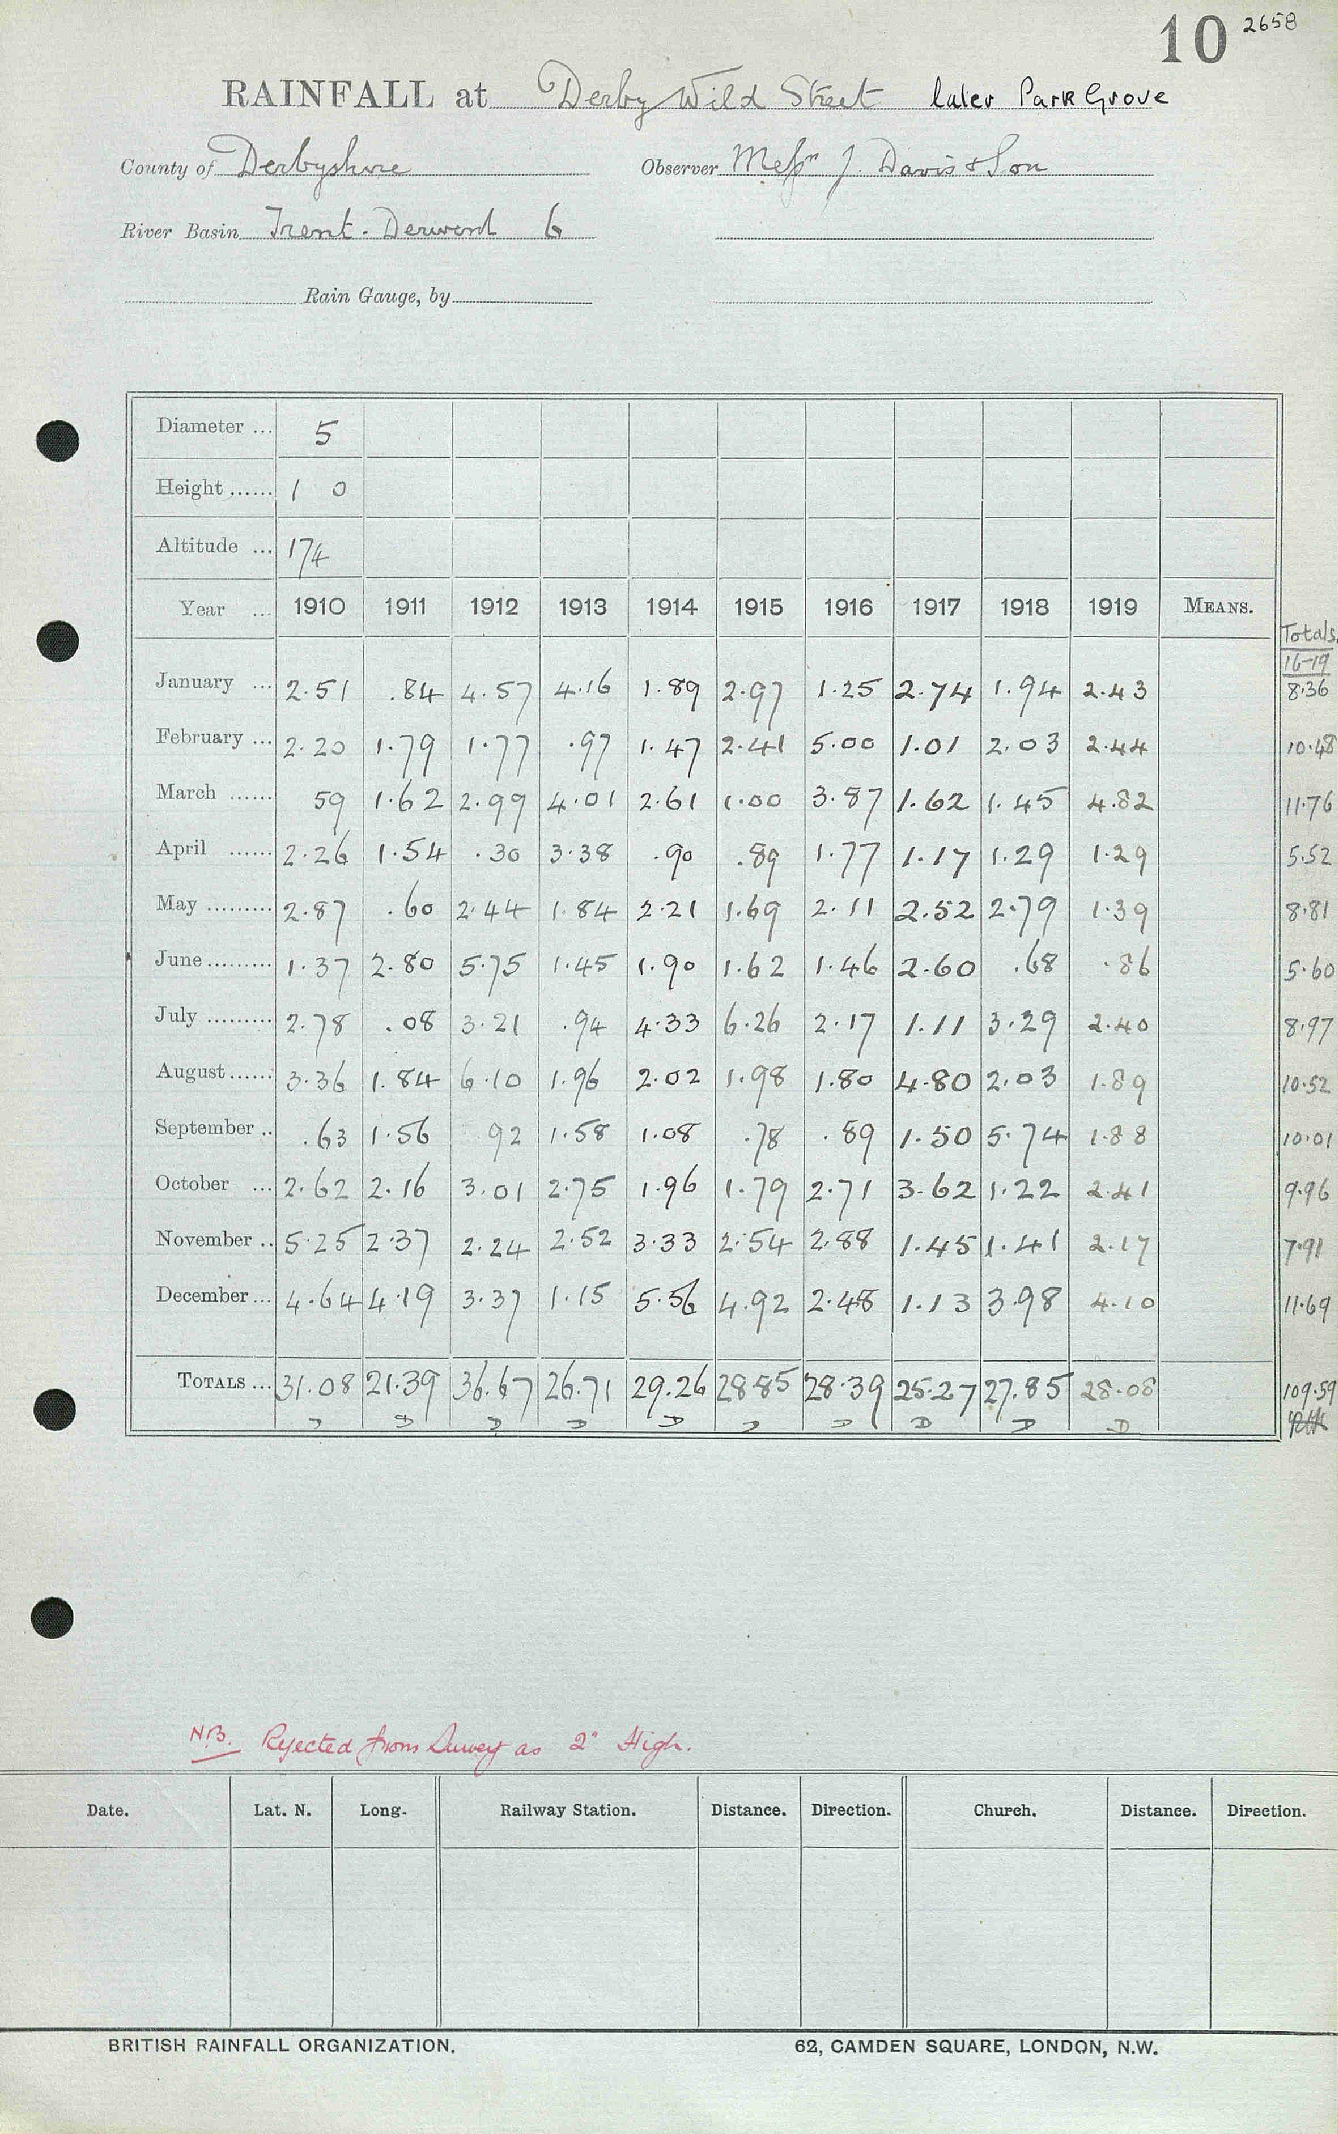 10 2658
RAINFALL at Derby Wild Street later Park Grove
County of Derbyshire Observer Messrs J. Davis & Son
River Basin Trent. Derwent 6
Rain Gauge, by
Diameter ... 5
Height ...... 1 0
Altitude ... 174
Year ... 1910 1911 1912 1913 1914 1915 1916 1917 1918 1919 MEANS. Totals
16-19
January ... 2.51 .84 4.57 4.16 1.89 2.97 1.25 2.74 1.94 2.43 8.36
February ... 2.20 1.79 1.77 .97 1.47 2.41 5.00 1.01 2.03 2.44 10.48
March ...... 59 1.62 2.99 4.01 2.61 1.00 3.87 1.62 1.45 4.82 11.76
April ...... 2.26 1.54 .30 3.38 .90 .89 1.77 1.17 1.29 1.29 5.52
May ......... 2.87 .60 2.44 1.84 2.21 1.69 2.11 2.52 2.79 1.39 8.81
June ......... 1.37 2.80 5.75 1.45 1.90 1.62 1.46 2.60 .68 .86 5.60
July ......... 2.78 .08 3.21 .94 4.33 6.26 2.17 1.11 3.29 2.40 8.97
August ...... 3.36 1.84 6.10 1.96 2.02 1.98 1.80 4.80 2.03 1.89 10.52
September .. .63 1.56 92 1.58 1.08 .78 .89 1.50 5.74 1.88 10.01
October ... 2.62 2.16 3.01 2.75 1.96 1.79 2.71 3.62 1.22 2.41 9.96
November .. 5.25 2.37 2.24 2.52 3.33 2.54 2.88 1.45 1.41 2.17 7.91
December ... 4.64 4.19 3.37 1.15 5.56 4.92 2.48 1.13 3.98 4.10 11.69
TOTALS ... 31.08 21.39 36.67 26.71 29.26 28.85 28.39 25.27 27.85 28.08 109.59
D D D D D D D D D D
N.B. Rejected from Survey as 2" High.
Date. Lat. N. Long. Railway Station. Distance. Direction. Church. Distance. Direction.
BRITISH RAINFALL ORGANIZATION. 62, CAMDEN SQUARE, LONDON, N.W.